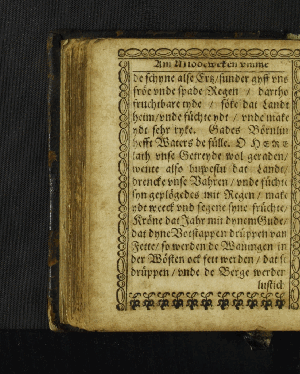 Am Middeweken vmme
de schyne alse Ertz/ sunder gyff vns
fröe vnde spade Regen / dartho
fruchtbare tyde / söke dat Landt
heim/ vnde füchte ydt / vnde make
ydt sehr ryke. Gades Börnlin
hefft Waters de fülle. O HERE
lath vnse Getreyde wol geraden/
wente also buwestu dat Landt/
drencke vnse Vahren / vnde füchte
syn geplögedes mit Regen / make
ydt weeck vnd segene syne früchte/
Kröne dat Jahr mit dynem Gude/
dat dyne Votstappen drüppen van
Fette/ so werden de Waningen in
der Wösten ock fett werden / dat se
drüppen / vnde de Berge werden
lustich